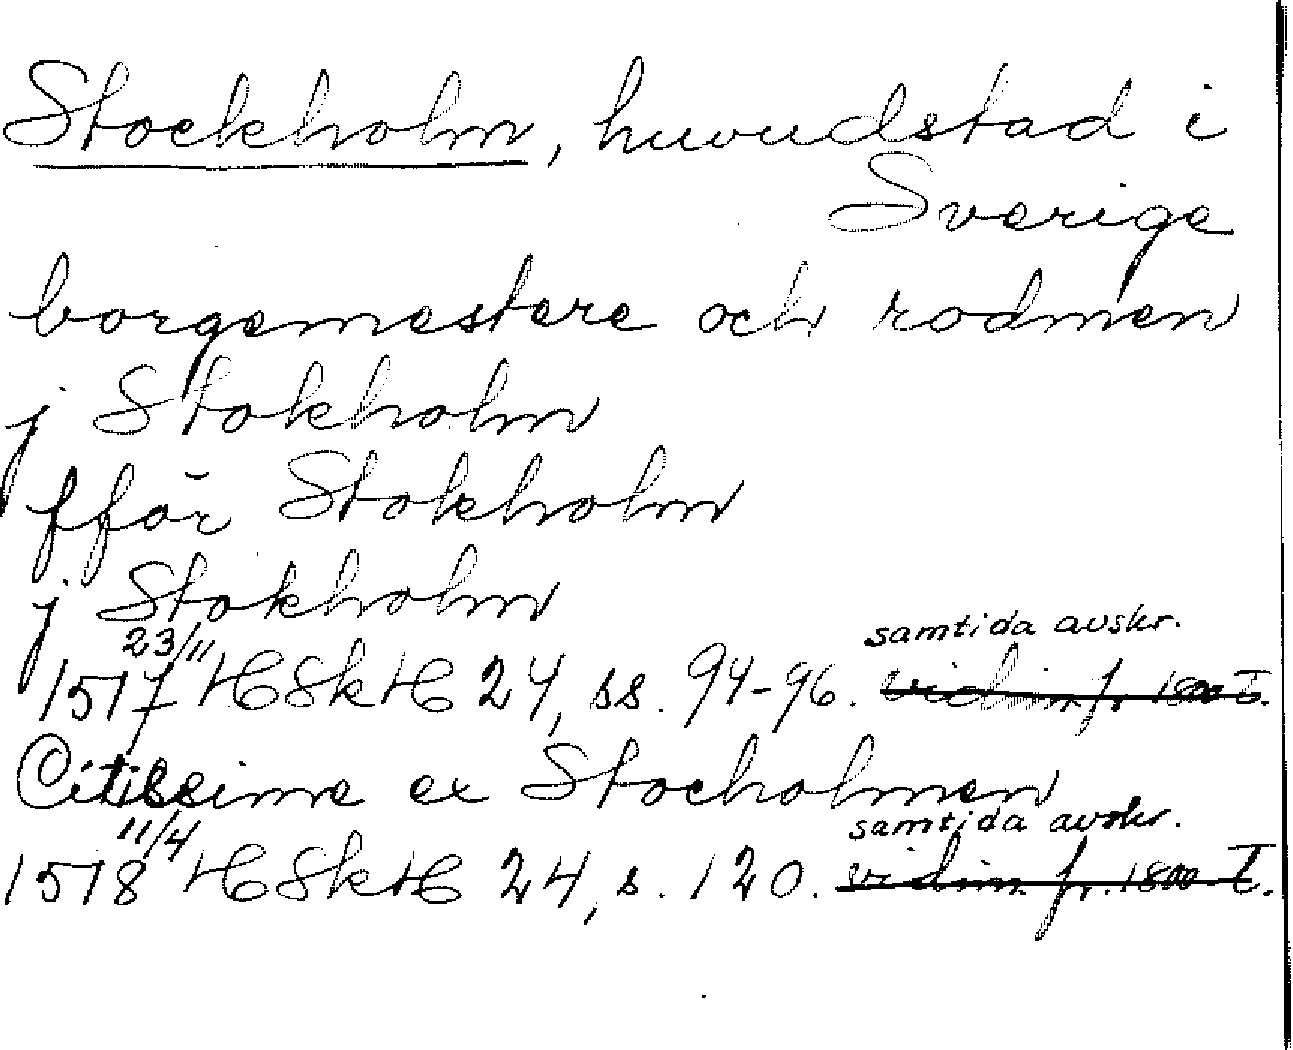 Stockholm, huvudstad i
Sverige
borgemestere och rodmen
j Stokholm
fför Stokholm
j Stokholm
1517 23/11 HSkH 24, ss. 94-96. samtida avskr. vidim fr. 1800 T.
Citissime ex Stocholmen
1518 11/4 HSkH 24, s. 120. samtida avskr. vidim. fr. 1800 T.